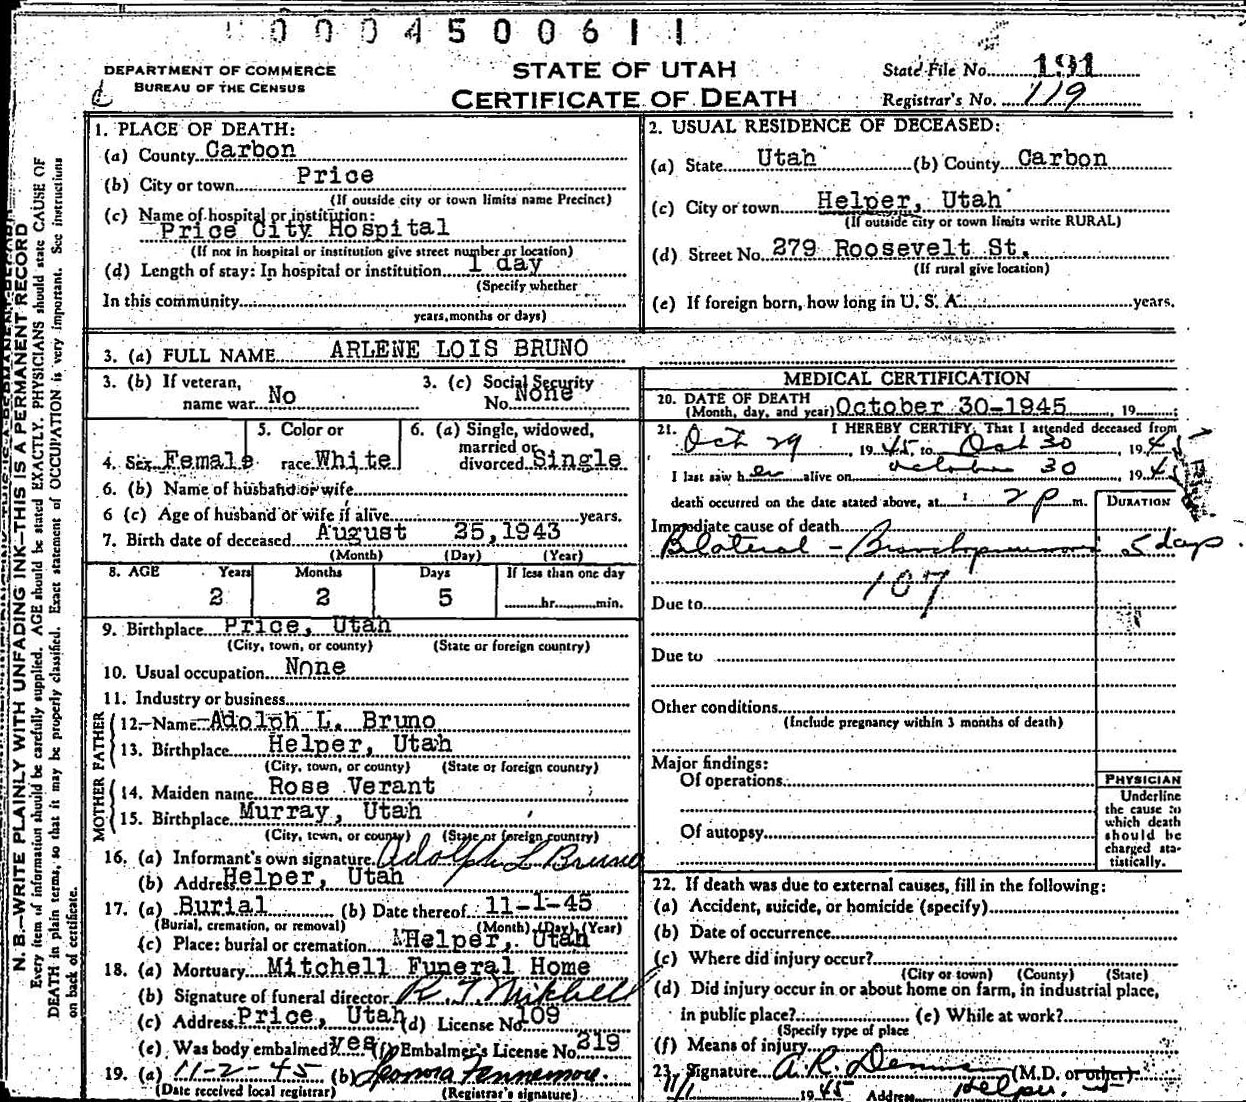 0004500611
DEPARTMENT OF COMMERCE
BUREAU OF THE CENSUS
STATE OF UTAH
CERTIFICATE OF DEATH
State File No. 191
Registrar's No. 119
N. B.—WRITE PLAINLY WITH UNFADING INK—THIS IS A PERMANENT RECORD
Every item of information should be carefully supplied. AGE should be stated EXACTLY. PHYSICIANS should state CAUSE OF
DEATH in plain terms, so that it may be properly classified. Exact statement of OCCUPATION is very important. See instructions
on back of certificate.
1. PLACE OF DEATH:
(a) County Carbon
(b) City or town Price
(If outside city or town limits name Precinct)
(c) Name of hospital or institution:
Price City Hospital
(If not in hospital or institution give street number or location)
(d) Length of stay: In hospital or institution 1 day
(Specify whether
In this community
years, months or days)
2. USUAL RESIDENCE OF DECEASED:
(a) State Utah (b) County Carbon
(c) City or town Helper, Utah
(If outside city or town limits write RURAL)
(d) Street No. 279 Roosevelt St.
(If rural give location)
(e) If foreign born, how long in U. S. A. years.
3. (a) FULL NAME ARLENE LOIS BRUNO
3. (b) If veteran,
name war No
3. (c) Social Security
No. None
4. Sex Female
5. Color or
race White
6. (a) Single, widowed,
married or
divorced Single
6. (b) Name of husband or wife
6 (c) Age of husband or wife if alive years.
7. Birth date of deceased August 25, 1943
(Month) (Day) (Year)
8. AGE Years Months Days If less than one day
2 2 5 hr. min.
9. Birthplace Price, Utah
(City, town, or county) (State or foreign country)
10. Usual occupation None
11. Industry or business
FATHER
12. Name Adolph L. Bruno
13. Birthplace Helper, Utah
(City, town, or county) (State or foreign country)
MOTHER
14. Maiden name Rose Verant
15. Birthplace Murray, Utah
(City, town, or county) (State or foreign country)
16. (a) Informant's own signature Adolph L Bruno
(b) Address Helper, Utah
17. (a) Burial (b) Date thereof 11-1-45
(Burial, cremation, or removal) (Month) (Day) (Year)
(c) Place: burial or cremation Helper, Utah
18. (a) Mortuary Mitchell Funeral Home
(b) Signature of funeral director R T Mitchell
(c) Address Price, Utah (d) License No. 109
(e) Was body embalmed? yes (f) Embalmer's License No. 219
19. (a) 11-2-45 (b) Leonora Fennemore.
(Date received local registrar) (Registrar's signature)
MEDICAL CERTIFICATION
20. DATE OF DEATH
(Month, day, and year) October 30-1945, 19
21. I HEREBY CERTIFY, That I attended deceased from
Oct 29, 1945, to Oct 30, 1945
I last saw her alive on October 30 1945
death occurred on the date stated above, at 2 p m.
DURATION
Immediate cause of death
Bilateral - Bronchopneumonia 5 days
107
Due to
Due to
Other conditions
(Include pregnancy within 3 months of death)
Major findings:
Of operations
Of autopsy
PHYSICIAN
Underline
the cause to
which death
should be
charged sta-
tistically.
22. If death was due to external causes, fill in the following:
(a) Accident, suicide, or homicide (specify)
(b) Date of occurrence
(c) Where did injury occur?
(City or town) (County) (State)
(d) Did injury occur in or about home on farm, in industrial place,
in public place? (e) While at work?
(Specify type of place
(f) Means of injury
23. Signature A. R. Demman (M.D. or other)
11/1 1945 Address Helper